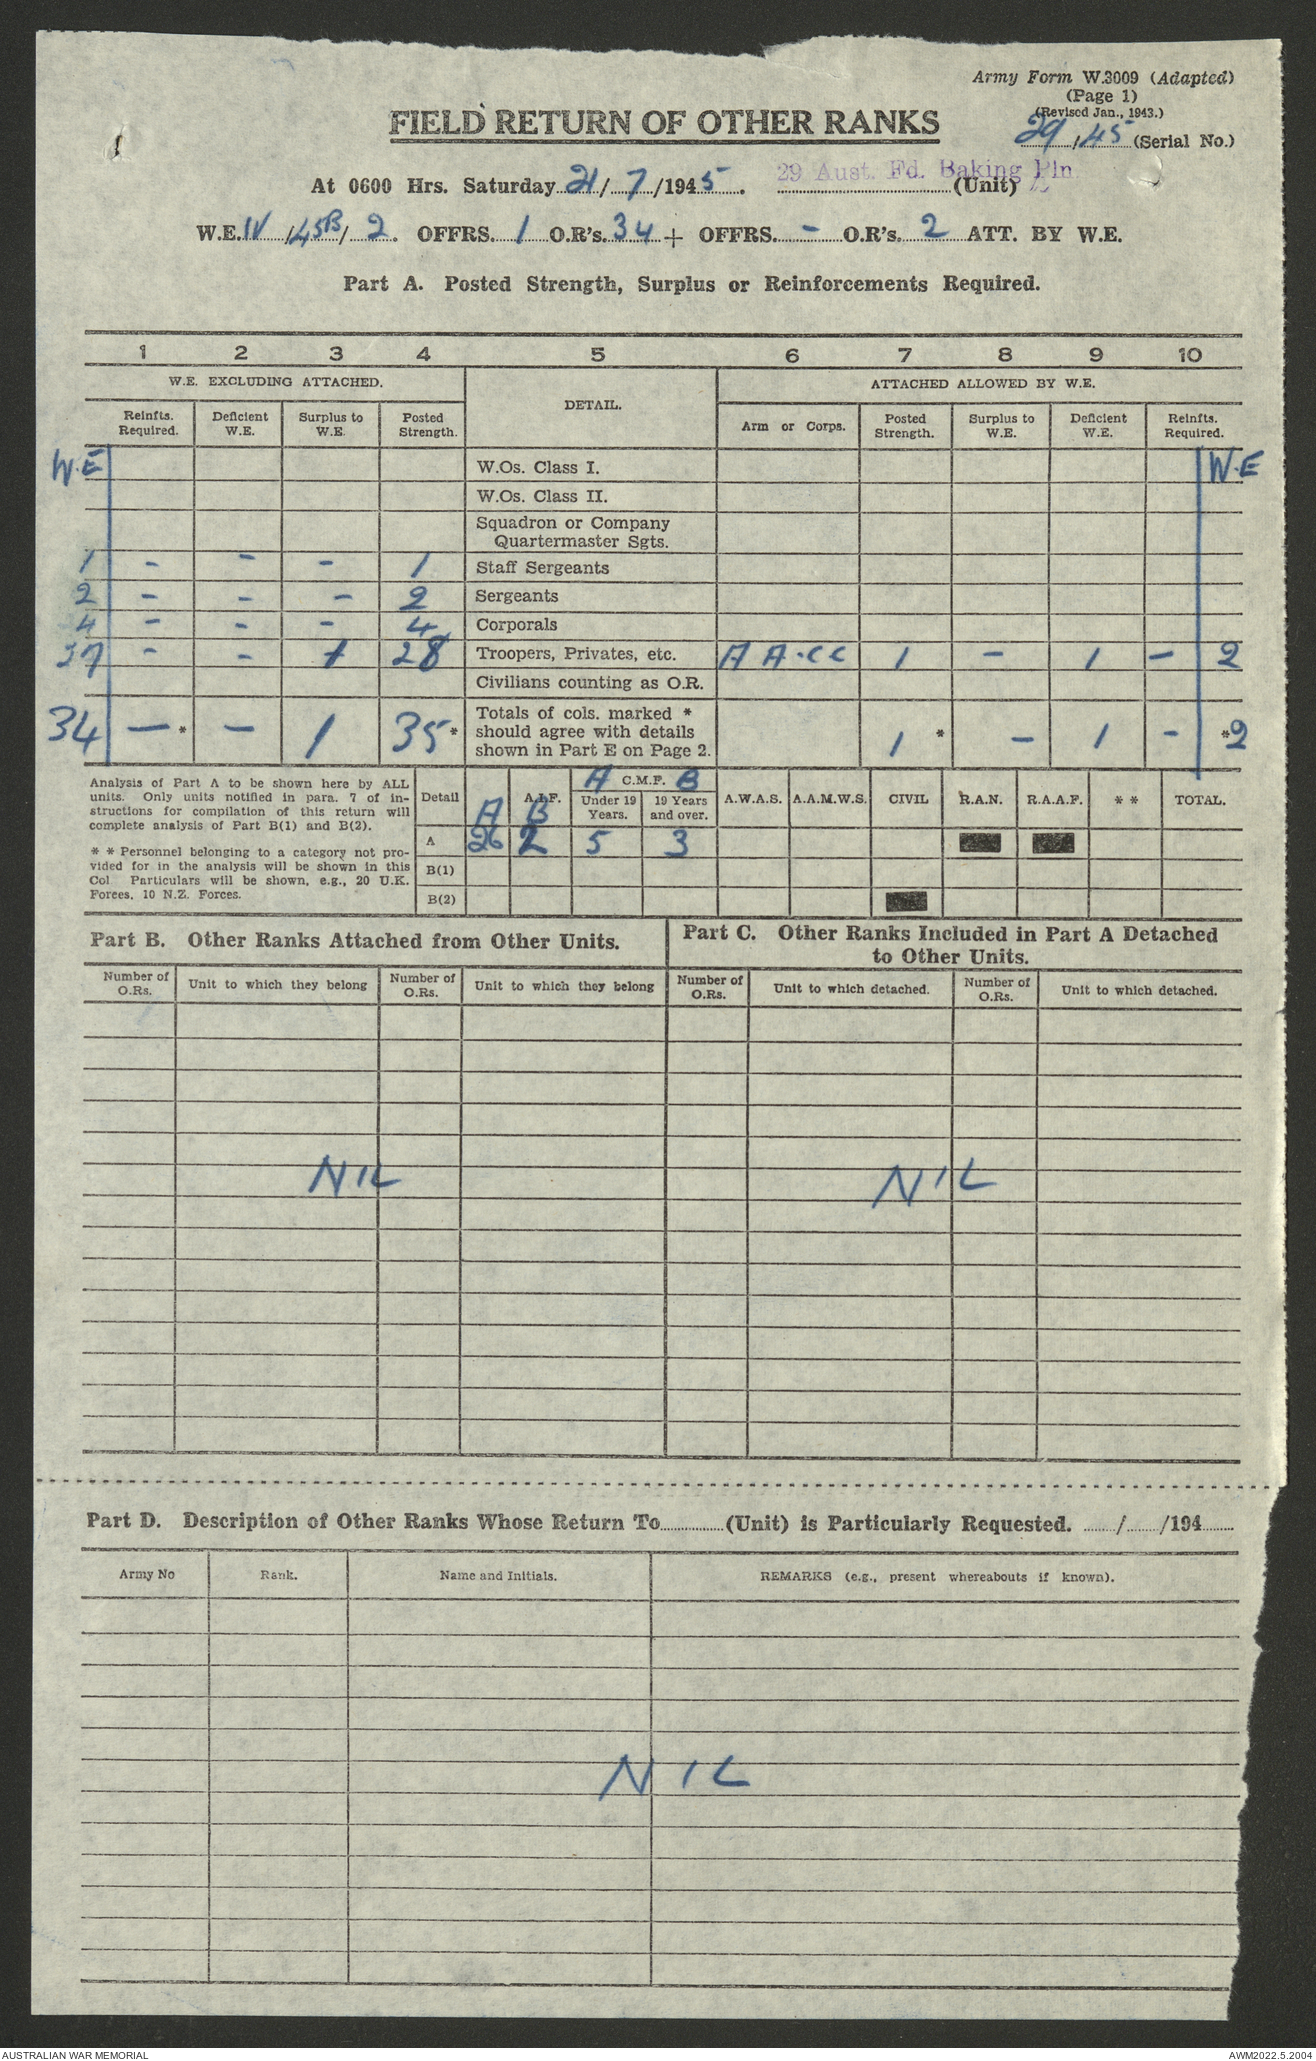 Army Form W.3009 (Adapted)
(Page 1)
(Revised Jan., 1943.)
29/45 (Serial No.)
FIELD RETURN OF OTHER RANKS
At 0600 Hrs. Saturday 21/7/1945. 29 Aust. Fd. Baking Pln (Unit)
W.E. IV/45B/2. OFFRS. 1 O.R's. 34 + OFFRS. - O.R's. 2 ATT. BY W.E.
Part A. Posted Strength, Surplus or Reinforcements Required.
1 2 3 4 5 6 7 8 9 10
W.E. EXCLUDING ATTACHED. DETAIL. ATTACHED ALLOWED BY W.E.
Reinfts. Required. Deficient W.E. Surplus to W.E. Posted Strength. Arm or Corps. Posted Strength. Surplus to W.E. Deficient W.E. Reinfts. Required.
W.E W.Os. Class I. W.E
W.Os. Class II.
Squadron or Company
Quartermaster Sgts.
1 - - - 1 Staff Sergeants
2 - - - 2 Sergeants
4 - - - 4 Corporals
27 - - 1 28 Troopers, Privates, etc. A A.CC 1 - 1 - 2
Civilians counting as O.R.
34 - * - 1 35 * Totals of cols. marked * should agree with details shown in Part E on Page 2. 1 * - 1 - * 2
Analysis of Part A to be shown here by ALL
units. Only units notified in para. 7 of in-
structions for compilation of this return will
complete analysis of Part B(1) and B(2).
* * Personnel belonging to a category not pro-
vided for in the analysis will be shown in this
Col Particulars will be shown, e.g., 20 U.K.
Forces, 10 N.Z. Forces.
Detail A A.I.F. B A C.M.F. B Under 19 Years. 19 Years and over. A.W.A.S. A.A.M.W.S. CIVIL R.A.N. R.A.A.F. * * TOTAL.
A 26 2 5 3
B(1)
B(2)
Part B. Other Ranks Attached from Other Units.
Part C. Other Ranks Included in Part A Detached
to Other Units.
Number of O.Rs. Unit to which they belong Number of O.Rs. Unit to which they belong Number of O.Rs. Unit to which detached. Number of O.Rs. Unit to which detached.
NIL NIL
Part D. Description of Other Ranks Whose Return To............(Unit) is Particularly Requested. ....../....../194......
Army No Rank. Name and Initials. REMARKS (e.g., present whereabouts if known).
NIL
AUSTRALIAN WAR MEMORIAL AWM2022.5.2004